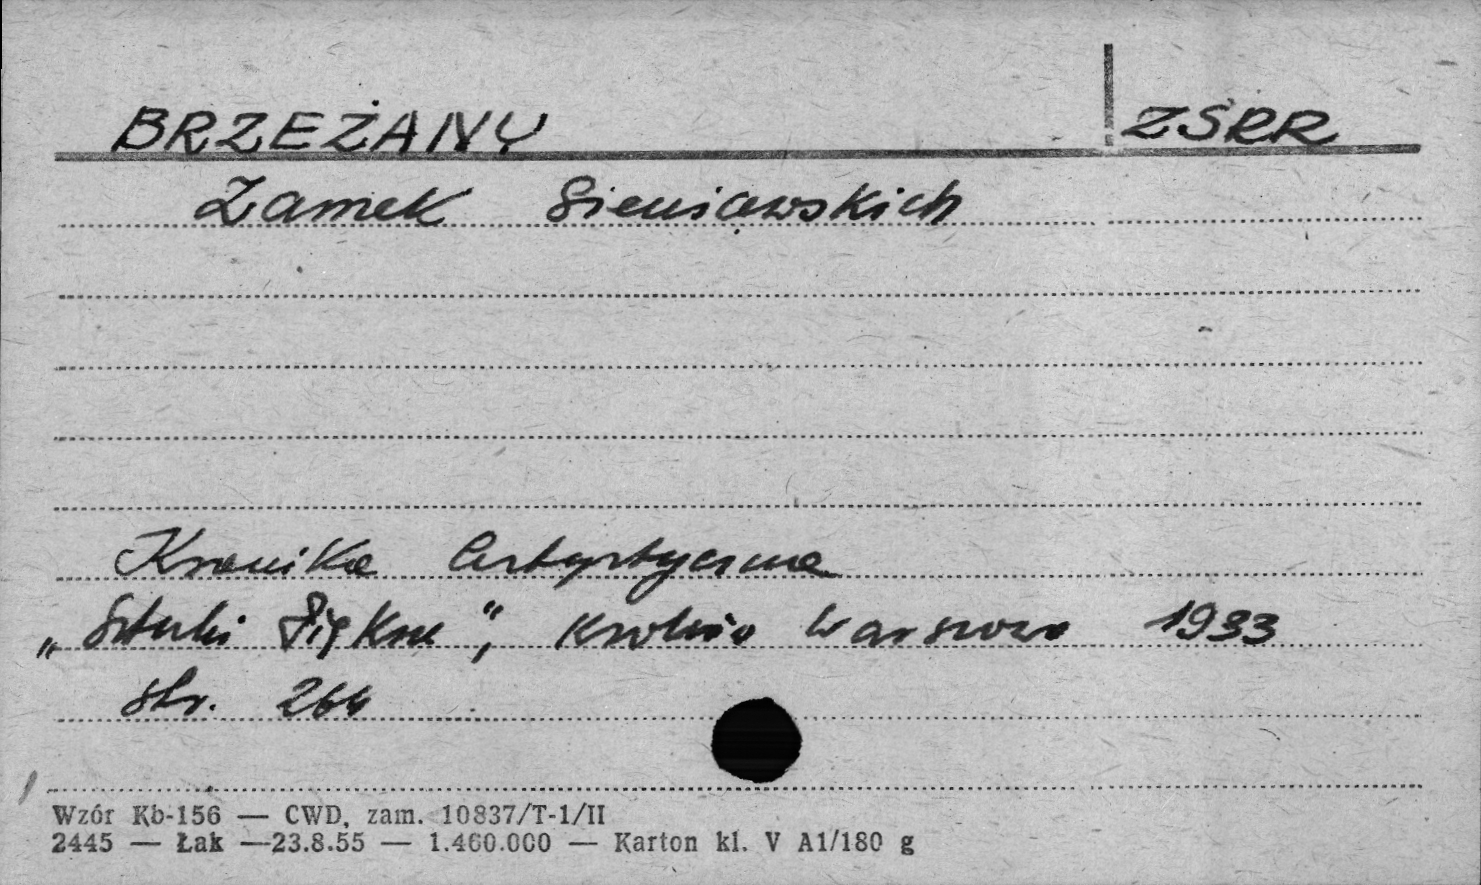 BRZEŻANY ZSRR
Zamek Sieniawskich
Kronika Artystyczna
„Sztuki Piękne", Kraków Warszawa 1933
str. 264
Wzór Kb-156 — CWD, zam. 10837/T-1/II
2445 — Łak —23.8.55 — 1.460.000 — Karton kl. V A1/180 g